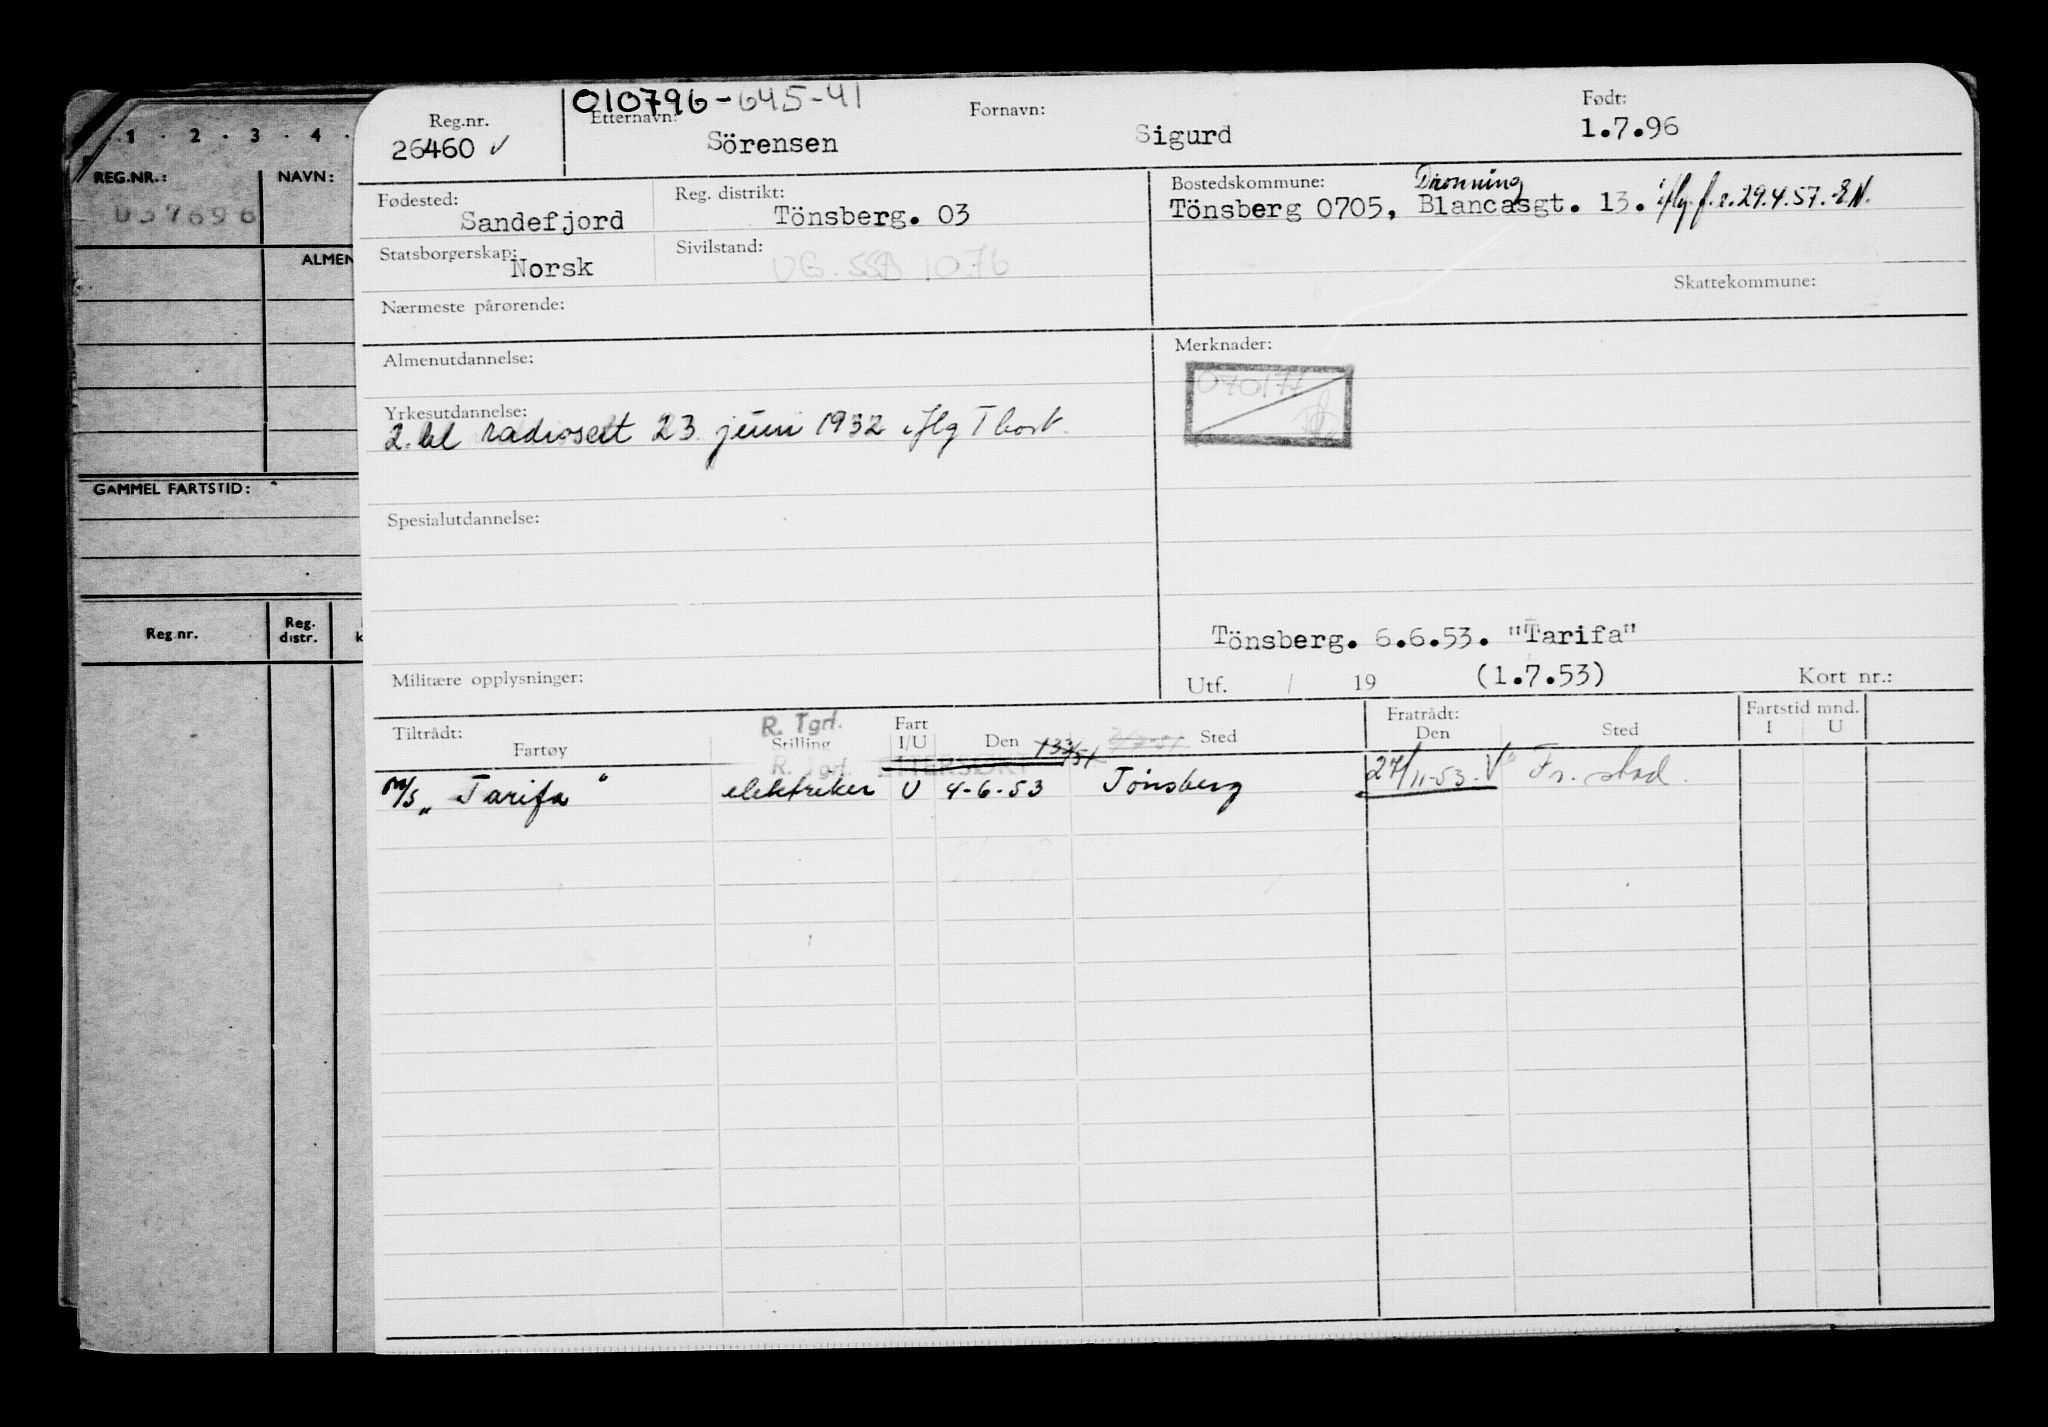 1 · 2 · 3 · 4 ·
REG.NR.: NAVN:
057696
ALMEN
GAMMEL FARTSTID:
Reg.nr. Reg. distr.
010796-645-41
Reg.nr. Etternavn: Fornavn: Født:
26460 ✓ Sörensen Sigurd 1.7.96
Fødested: Reg. distrikt: Bostedskommune: Dronning
Sandefjord Tönsberg. 03 Tönsberg 0705, Blancasgt. 13. iflg. f.s. 29.4.57. EN.
Statsborgerskap: Sivilstand:
Norsk UG. SSB 10.76
Skattekommune:
Nærmeste pårørende:
Almenutdannelse: Merknader:
070177
Yrkesutdannelse:
2. kl radiosert 23 juni 1932 iflg T kort.
Spesialutdannelse:
Tönsberg. 6.6.53. "Tarifa"
Militære opplysninger: Utf. / 19 (1.7.53) Kort nr.:
R. Tgrf. Fart Fratrådt: Fartstid mnd.
Tiltrådt: Fartøy Stilling I/U Den Sted Den Sted I U
R. Tgrf. ETTERSØKT
M/S „Tarifa" elektriker U 4-6-53 Tönsberg 27/11-53. V Fr. stad.